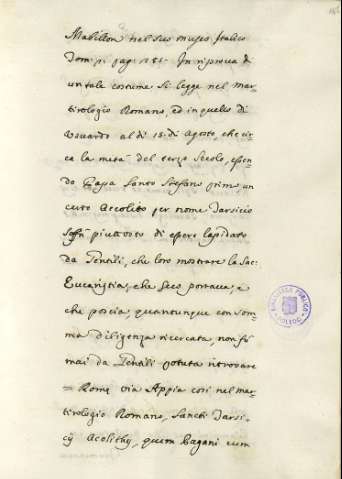 Mabillon nel suo museo Italico
Tom. p. pag.
In riprova di
un tale costume si legge nel mar-
tirologio Romano, ed in quello di
Usuardo al di 15. di Agosto, che cir-
ca la metà del terzo secolo, essen-
do Papa Santo Stefano primo, un
certo Accolito per nome Tarsicio
soffrì piuttosto di essere lapidato
da Gentili, che loro mostrare la Sac:
Eucaristia, che seco portava, e
che poscia, quantunque con som-
ma diligenza ricercata non fù
mai da Gentili potuta ritrovare
= Romæ via Appia così nel mar-
tirologio Romano, Sancti Tarsi-
cij Acolithy, quem Pagani cum
BIBLIOTECA PUBLICA
TOLEDO